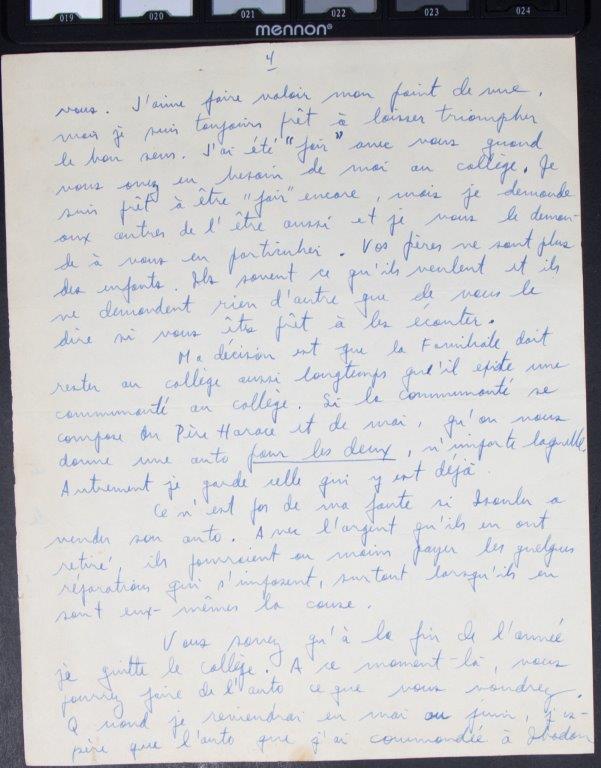 019 020 021 022 023 024
mennon®
4
vous. J'aime faire valoir mon point de vue,
mais je suis toujours prêt à laisser triompher
le bon sens. J'ai été "fair" avec vous quand
vous avez eu besoin de moi au collège. Je
suis prêt à être "fair" encore, mais je demande
aux autres de l'être aussi et je vous le deman-
de à vous en particulier. Vos frères ne sont plus
des enfants. Ils savent ce qu'ils veulent et ils
ne demandent rien d'autre que de vous le
dire si vous êtes prêt à les écouter.
Ma décision est que la Familiale doit
rester au collège aussi longtemps qu'il existe une
communauté au collège. Si la communauté se
compose du Père Horace et de moi, qu'on nous
donne une auto pour les deux, n'importe laquelle.
Autrement je garde celle qui y est déjà.
Ce n'est pas de ma faute si a
vendu son auto. Avec l'argent qu'ils en ont
retiré, ils pourraient au moins payer les quelques
réparations qui s'imposent, surtout lorsqu'ils en
sont eux-mêmes la cause.
Vous savez qu'à la fin de l'année
je quitte le collège. A ce moment-là, vous
pourrez faire de l'auto ce que vous voudrez.
Quand je reviendrai en mai ou juin, j'es-
père que l'auto que j'ai commandée à Ibadan